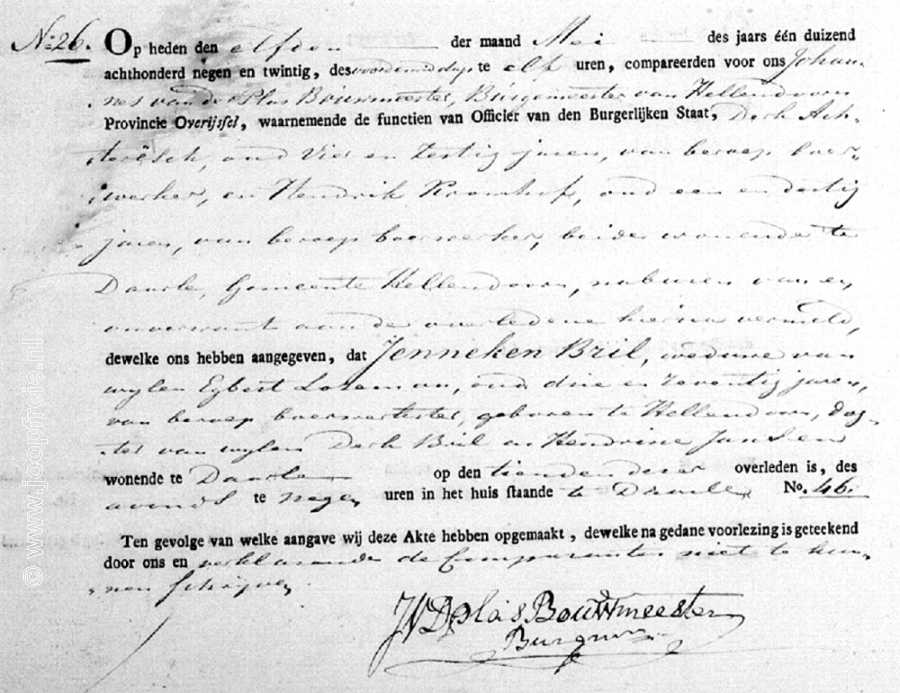 No. 26. Op heden den elfden der maand Mei des jaars één duizend
achthonderd negen en twintig, des voordemiddags te elf uren, compareerden voor ons Johan-
nes van der Plas Bouwmeester, Burgemeester van Hellendoorn
Provincie Overijssel, waarnemende de functien van Officier van den Burgerlijken Staat, Derk Ach-
teresch, oud Vier en Zestig jaren, van beroep boer-
werker, en Hendrik Kromhof, oud een en dertig
jaren, van beroep boerwerker, beide wonende te
Daarle, Gemeente Hellendoorn, naburen van en
onverwant aan de overledene hierna vermeld,
dewelke ons hebben aangegeven, dat Jenneken Bril, weduwe van
wylen Egbert Loseman, oud drie en Zeventig jaren,
van beroep boerwerkster, geboren te Hellendoorn, dog-
ter van wylen Derk Bril en Hendrine Jansen
wonende te Daarle op den tienden dezer overleden is, des
avonds te negen uren in het huis staande te Daarle No. 46.
Ten gevolge van welke aangave wij deze Akte hebben opgemaakt, dewelke na gedane voorlezing is geteekend
door ons en verklarende de Comparanten niet te kun-
nen schrijven
JVDPlas Bouwmeester
Burgm
© www.joopnijstad.nl